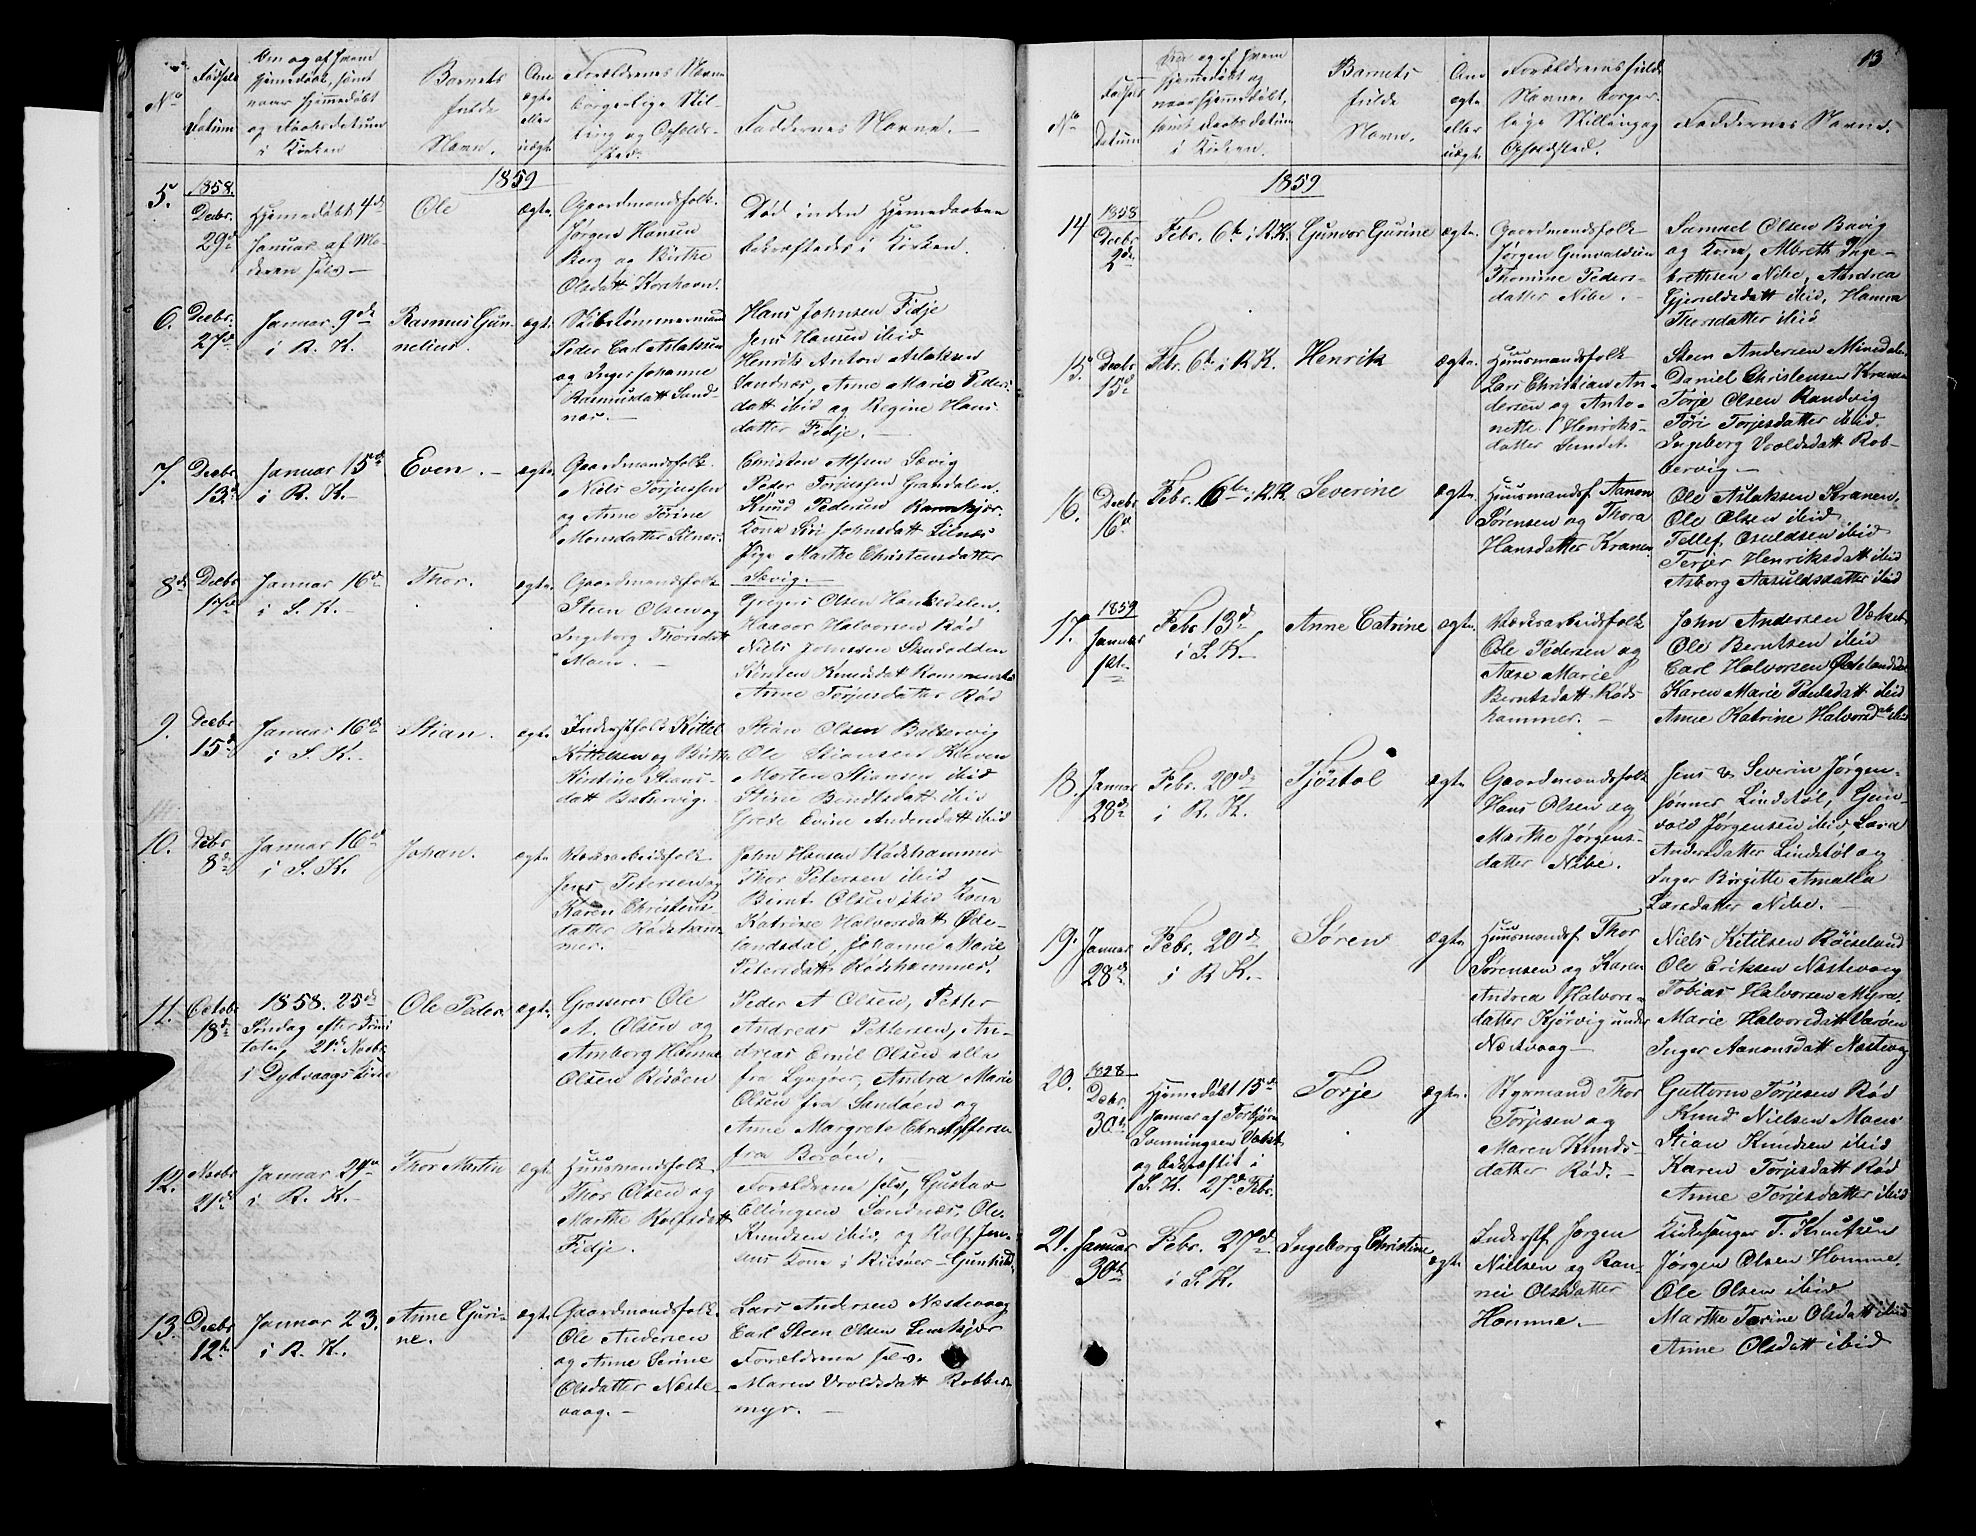 No
Fødsels
Datum
Om og af hvem
hjemmedøbt, samt
naar hjemmedøbt
og Daabsdatum
i Kirken
Barnets
fulde
Navn.
Om
ægte
eller
uægte
Forældrenes Navne
borgerlige Stil-
ling og Opholds-
sted.
Faddernes Navne. —
1859
5.
1858.
Decbr.
29de
Hjemmedøbt 4de
Januar af Mo-
deren selv —
Ole
ægte.
Gaardmandsfolk.
Jørgen Hansen
Berg og Birthe
Olsdatt Korshavn.
Død inden Hjemmedaaben
bekræftedes i Kirken.
6.
Decbr.
27de
Januar 9de
i R. K.
Rasmus Gun-
nelius.
ægte.
Skibstømmermand
Peder Carl Aslaksen
og Inger Johanne
Rasmusdatt Sand-
næs. —
Hans Johnsen Fidje
Jens Hansen ibid
Henrik Anton Aslaksen
Sandnæs, Anne Marie Peders-
datt ibid og Regine Hans-
datter Fidje. —
7.
Decbr
13de
Januar 15de
i R. K. —
Even. —
ægte.
Gaardmandsfolk.
Niels Torjussen
og Anne Torine
Monsdatter Lilnes.
Christen Alfsen Sævig
Peder Torjussen Grændalen.
Knud Pedersen
Kona Siri Johnsdatt Lilnæs
Pige Marthe Christensdatter
Sævig. —
8de
Decbr
17de
Januar 16de
i S. K. —
Thor.
ægte.
Gaardmandsfolk
Steen Olsen og
Ingeborg Thorsdatt
Moen. —
Gregers Olsen
Haavor Halvorsen Rød
Niels Johnsen
Kirsten Knudsdatt
Anne Torjusdatter Rød
9.
Decbr
15de
Januar 16de
i S. K. —
Stian.
ægte.
Inderstfolk Kittel
Kittelsen og Birthe
Kirstine Stians-
datt Balsvrvig. —
Stian Olsen Balsvrvig
Ole Stiansen Kleven
Morten Stiansen ibid
Stine Bendtsdatt ibid
Grete Evine Andersdatt ibid
10.
Decbr
8de
Januar 16de
i S. K.
Johan.
ægte
Værksarbeidsfolk
Jens Petersen og
Karen Christens-
datter Rødsham-
mer.
John Hansen Rødshammer
Thor Petersen ibid
Bernt Olsen ibid Kona
Katrine Halvorsdatt Øde-
landsdal, Johanne Marie
Petersdatt Rødshammer.
11.
Octobr
18de
1858. 25de
Søndag efter Trini
tates, 21de Novbr
i Dybvaags Kirke
Ole Peder.
ægte.
Grosserer Ole
A. Olsen og
Amborg Hanne
Olsen Risøen
Peder A Olsen, Petter
Andreas Pettersen, An-
dreas Emil Olsen alle
fra Lyngøer, Andrea Marie
Olsen fra Sandøen og
Anne Margrete Christoffersen
fra Borøen.
12.
Novbr
21de
Januar 24de
i R. K. —
Thor Martin
ægte
Huusmandsfolk
Thor Olsen og
Marthe Rolfsdatt
Fidje.
Forældrene selv, Gustav
Ellingsen Sandnæs, Ole
Knudsen ibid, og Rolf Jen-
sens Kone i Riisøer — Gunhild
13.
Decbr
12te
Januar 23.
i R. K.
Anne Guri-
ne.
ægte.
Gaardmandsfolk
Ole Andersen
og Anne Serine
Olsdatter Næste-
vaag. —
Lars Andersen Næstevaag
Carl Steen Olsen Lunkjær
Forældrene selv.
Maren Vroldsdatt Robber-
myr. —
13
No
Fødsels
Datum
Om og af hvem
hjemmedøbt og
naar hjemmedøbt,
samt Daabsdatum
i Kirken.
Barnets
fulde
Navn.
Om
ægte
eller
uægte
Forældrenes fulde
Navne, borger-
lige Stilling og
Opholdssted.
Faddernes Navne.
1859
14
1858
Decbr
2de
Febr. 6te i R. K.
Gunvor Gurine
ægte.
Gaardmandsfolk
Jørgen Gunvaldsen
Thomine Peders-
datter Nibe. —
Samuel Olsen Bavig
og Kona, Albreth Inge-
brethsen Nibe, Andrea
Gjeruldsdatt ibid, Hanna
Thorsdatter ibid
15.
Decbr
15de
Febr. 6te i R K.
Henrik
ægte.
Huusmandsfolk
Lars Christian An-
dersen og Anto-
nette Henriks-
datter Sundet
Steen Andersen Minedalen
Daniel Christensen Kranen
Torje Olsen Randvig
Tøri Torjesdatter ibid.
Ingeborg Vroldsdatt Rob-
bervig. —
16.
Decbr
16de
Febr. 6te i R. K
Severine
ægte.
Huusmandsf Aanon
Sørensen og Thora
Hansdatter Kranen
Ole Aslaksen Kranen.
Ole Olsen ibid
Tellef Osuldsen ibid
Terjer Henriksdatt ibid
Asborg Aasuldsdatter ibid
17.
1859
Januar
1ste
Febr 13de
i S. K. —
Anne Catrine
ægte.
Værksarbeidsfolk
Ole Pedersen og
Aase Marie
Berntsdatt Røds-
hammer. —
John Andersen
Ole Berntsen ibid
Carl Halvorsen Ødelandsdal
Karen Marie Poulsdatt ibid
Anne Katrine Halvorsdatt ibid
18.
Januar
28de
Febr. 20de
i R. K.
Tjøstøl
ægte.
Gaardmandsfolk
Hans Olsen og
Marthe Jørgens-
datter Nibe.
Jens & Severin Jørgen-
sønner Lindstøl, Gun-
vald Jørgensen ibid, Lara
Andersdatter Lindstøl og
Inger Birgitte Amalia
Larsdatter Nibe. —
19.
Januar
28de
Febr. 20de
i R K. —
Søren
ægte
Huusmandsf Thor
Sørensen og Karen
Andrea Halvors-
datter Kjørvig under
Næstvaag —
Niels Kittilsen Røiseland
Ole Eriksen Næstevaag
Tobias Halvorsen Myra.
Marie Halvorsdatt Varøen
Inger Aanonsdatt Næstevaag
20.
1828
Decbr.
30te
Hjemmedøbt 15de
Januar af Torbjørn
Tvenningsen Vabst
og bekræftet i
S. K. 27de Febr.
Torje
ægte.
Styrmand Thor
Torjesen og
Maren Knuds-
datter Rød. —
Guttorm Torjesen Rød
Knud Nielsen Moen
Stian Knudsen ibid
Karen Torjesdatt Rød
Anne Torjesdatter ibid
21.
Januar
30te
Febr. 27de
i S. K.
Ingeborg Christine
ægte
Inderstf Jørgen
Nielsen og Ran-
nei Olsdatter
Homme. —
Kirkesanger T. Knutzen
Jørgen Olsen Homme.
Ole Olsen ibid
Marthe Torine Olsdatt ibid
Anne Olsdatt ibid